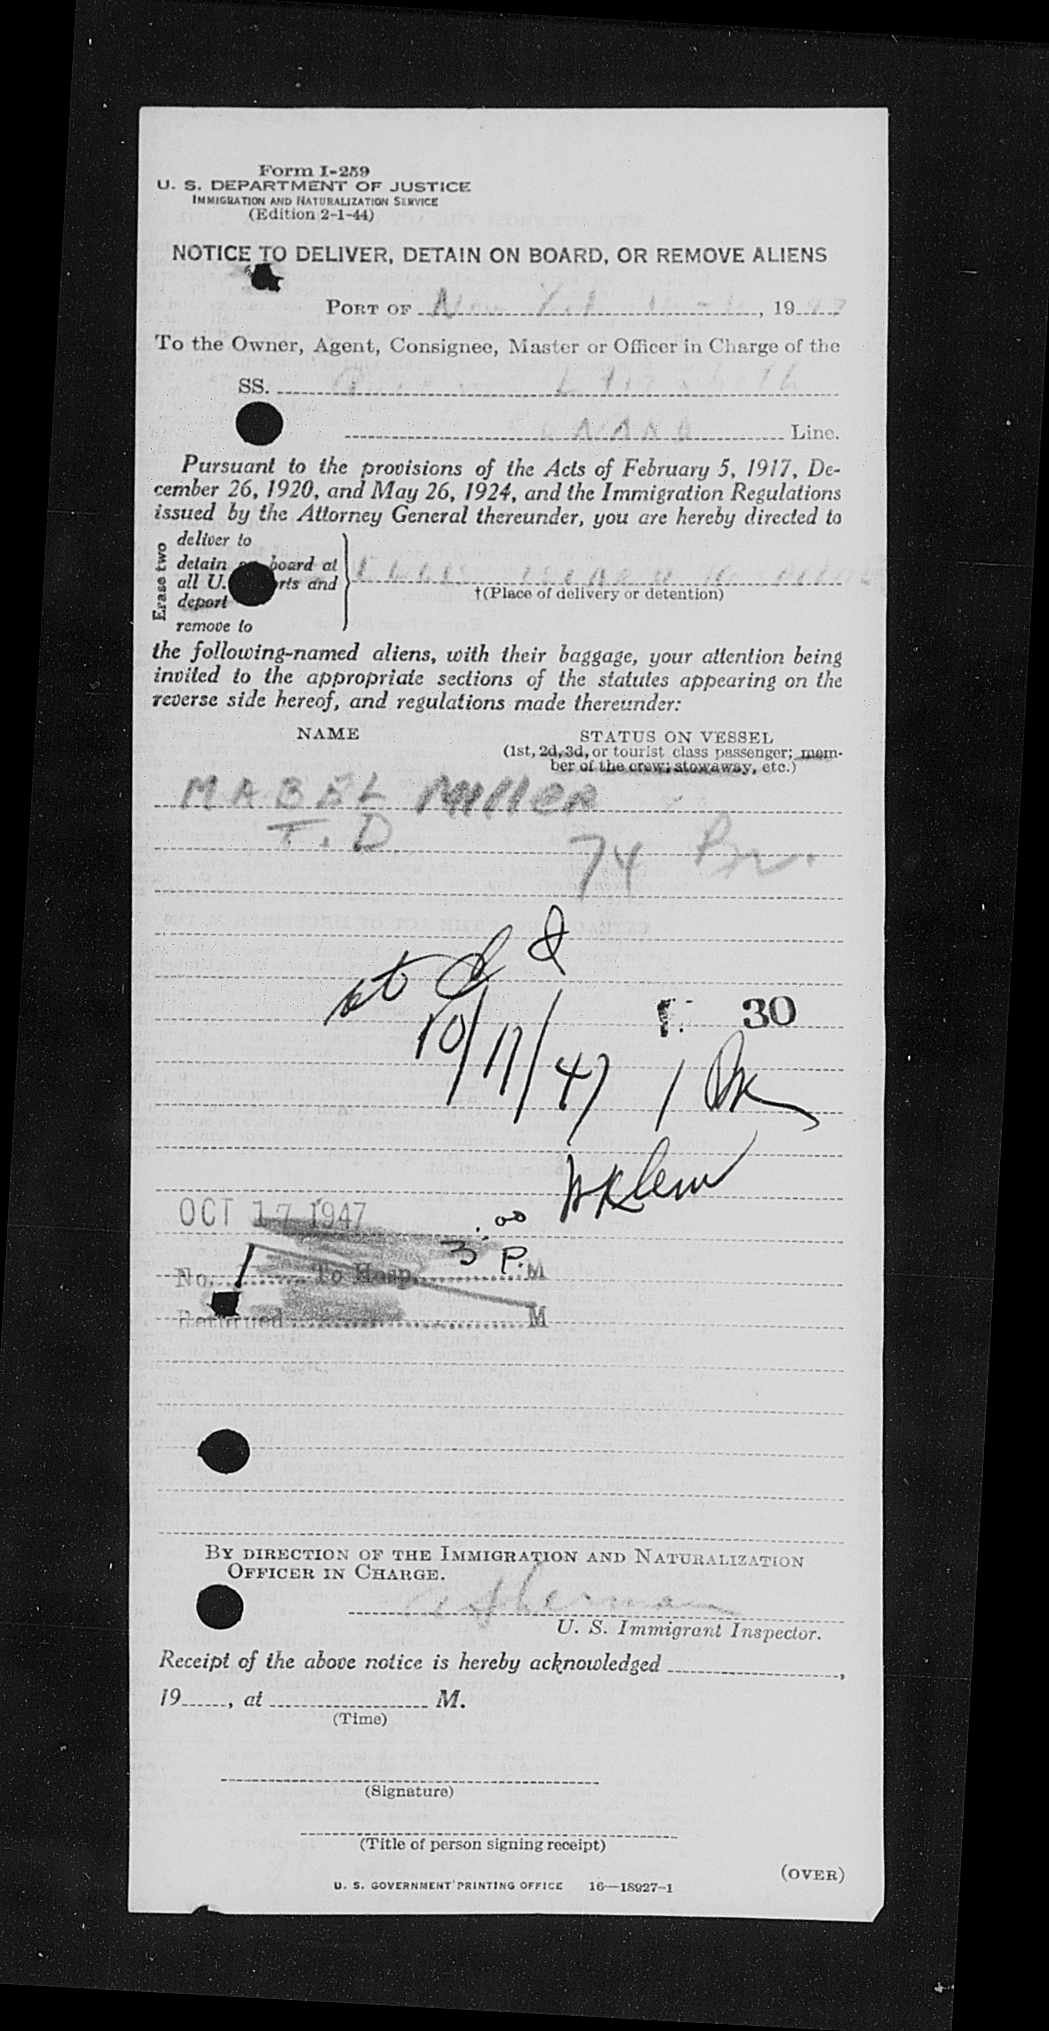 Form I-259
U. S. DEPARTMENT OF JUSTICE
IMMIGRATION AND NATURALIZATION SERVICE
(Edition 2-1-44)
NOTICE TO DELIVER, DETAIN ON BOARD, OR REMOVE ALIENS
PORT OF New York, 1947
To the Owner, Agent, Consignee, Master or Officer in Charge of the
SS. Elizabeth
Line.
Pursuant to the provisions of the Acts of February 5, 1917, De-
cember 26, 1920, and May 26, 1924, and the Immigration Regulations
issued by the Attorney General thereunder, you are hereby directed to
Erase two
deliver to
detain on board at
all U. ports and
deport
remove to
†(Place of delivery or detention)
the following-named aliens, with their baggage, your attention being
invited to the appropriate sections of the statutes appearing on the
reverse side hereof, and regulations made thereunder:
NAME STATUS ON VESSEL
(1st, 2d, 3d, or tourist class passenger; mem-
ber of the crew; stowaway, etc.)
MABEL MILLER
T. D. 74 Br.
10/17/47 1
30
OCT 17 1947
3:00
No. 1 To Hosp. P.M
Returned M
BY DIRECTION OF THE IMMIGRATION AND NATURALIZATION
OFFICER IN CHARGE.
Sherman
U. S. Immigrant Inspector.
Receipt of the above notice is hereby acknowledged ,
19 , at M.
(Time)
(Signature)
(Title of person signing receipt)
(OVER)
U. S. GOVERNMENT PRINTING OFFICE 16—18927-1